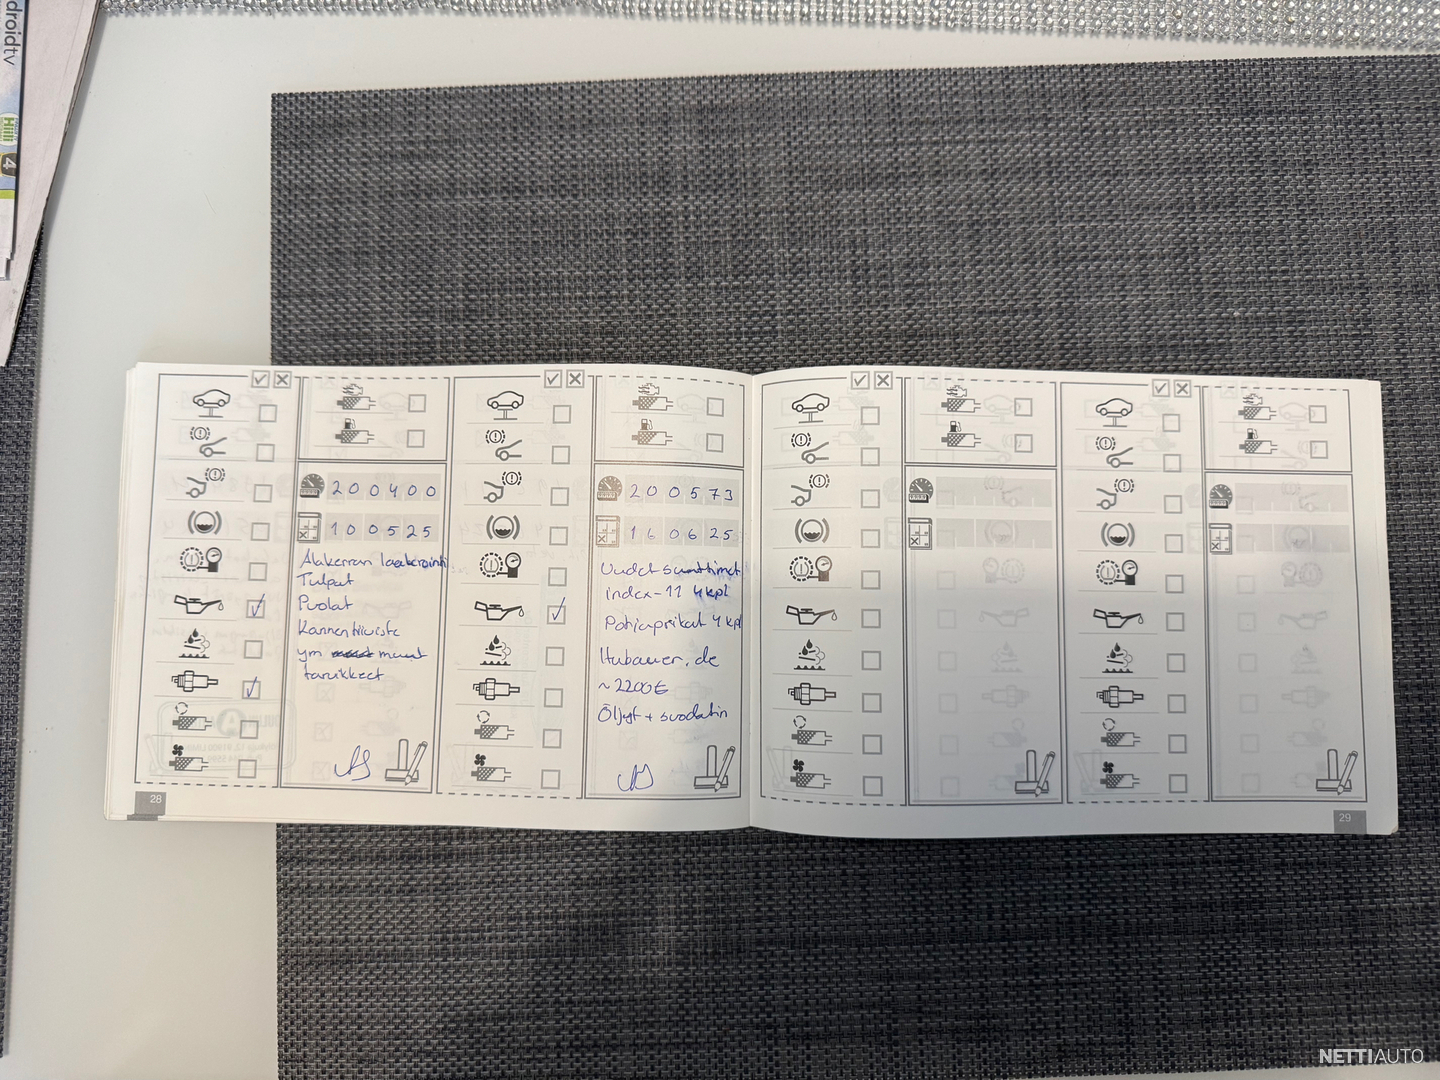 droidtv
Hiili
4
200400
100525
Alakerran laakerointi
Tulpat
Puolat
Kannentiiviste
ym muut
tarvikkeet
28
200573
160625
Uudet suuttimet
index-11 4kpl
Potiaprikat 4kpl
Hubauer.de
~2200€
Öljyt + suodatin
29
NETTIAUTO